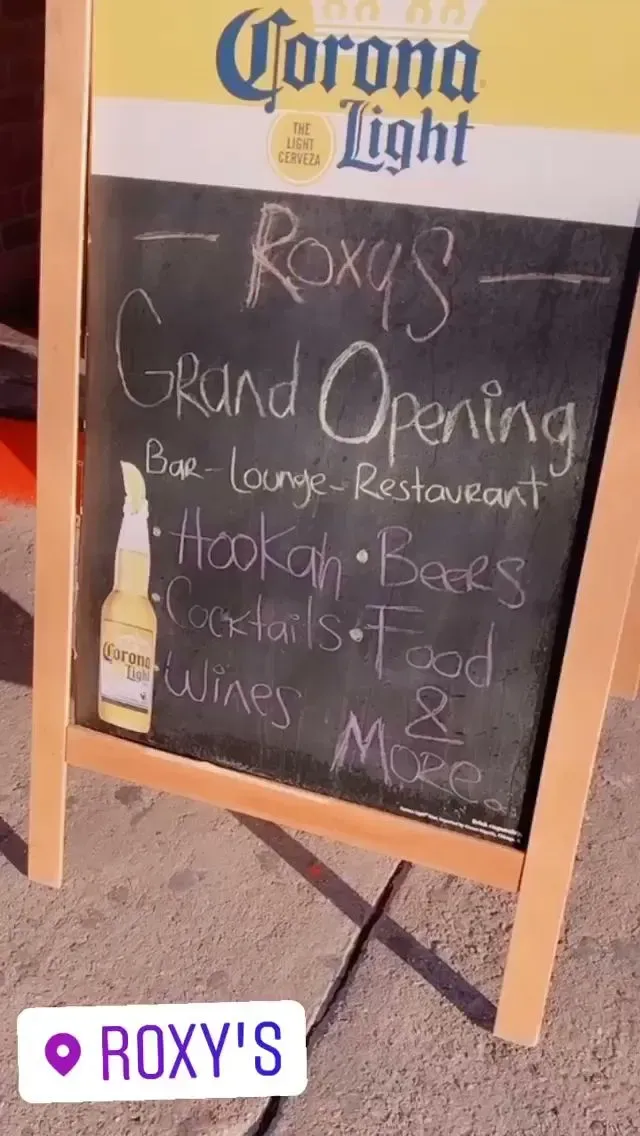 Corona
Light
THE
LIGHT
CERVEZA
— Roxys —
Grand Opening
Bar - Lounge - Restaurant
• Hookah • Beers
• Cocktails • Food
• Wines &
More.
Corona
Light
ROXY'S